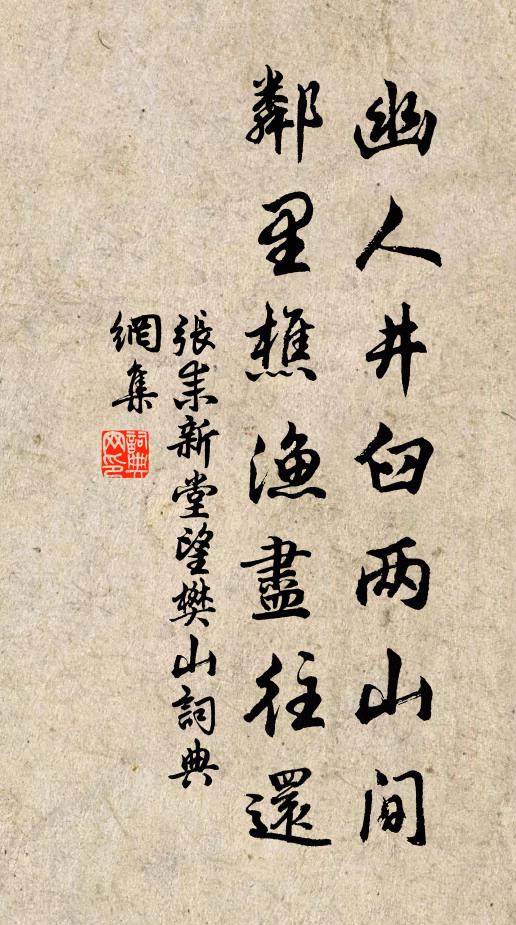 幽人井臼两山间
鄰里樵漁盡往還
張耒新堂望樊山詞典
網集
詞典網印